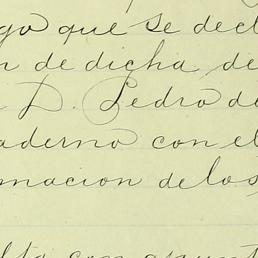 go que se decl
n de dicha de
D. Pedro de
aderno con el
macion de los
lto con apunt